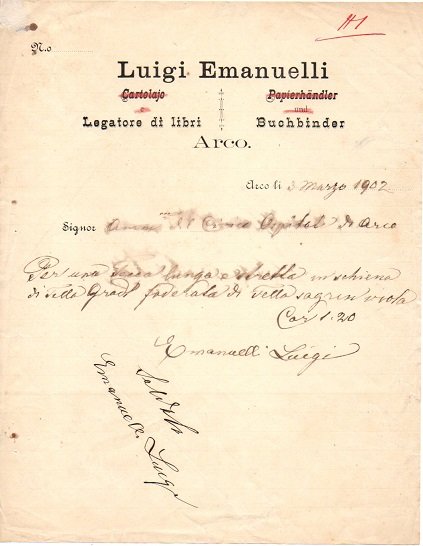 41
N.o
Luigi Emanuelli
Cartolajo Papierhändler
e und
Legatore di libri Buchbinder
Arco.
Arco li 3 Marzo 1902
Signor Civico Ospital di Arco
Per una lunga e stretta in schiena
di tella foderata di tella sagrin viola
Cor 1.20
Emanuelli Luigi
Saldato
Emanuelli Luigi